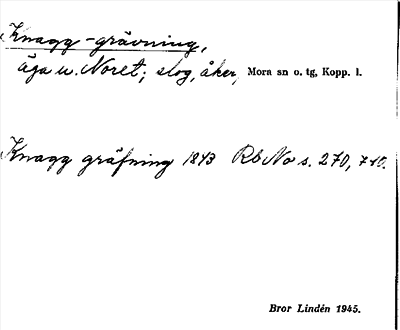 Knagg-grävning,
äga u. Noret; slog, åker, Mora sn o. tg, Kopp. l.
Knagg gräfning 1843 Rb No s. 270, 710.
Bror Lindén 1945.